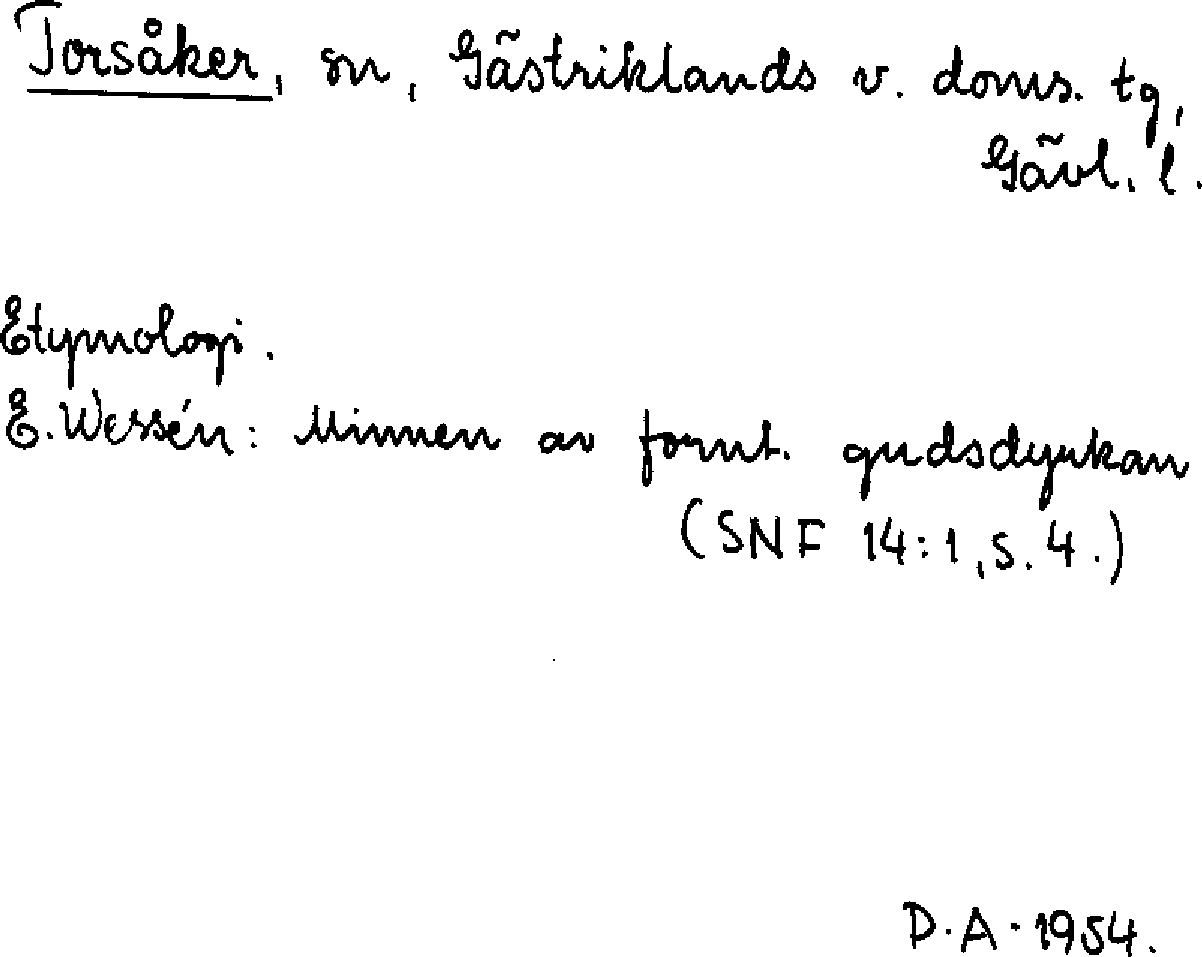 Torsåker, sn, Gästriklands v. doms. tg,
Gävl. l.
Etymologi.
E. Wessén: Minnen av fornt. gudsdyrkan
(SNF 14:1, s. 4.)
D.A. 1954.